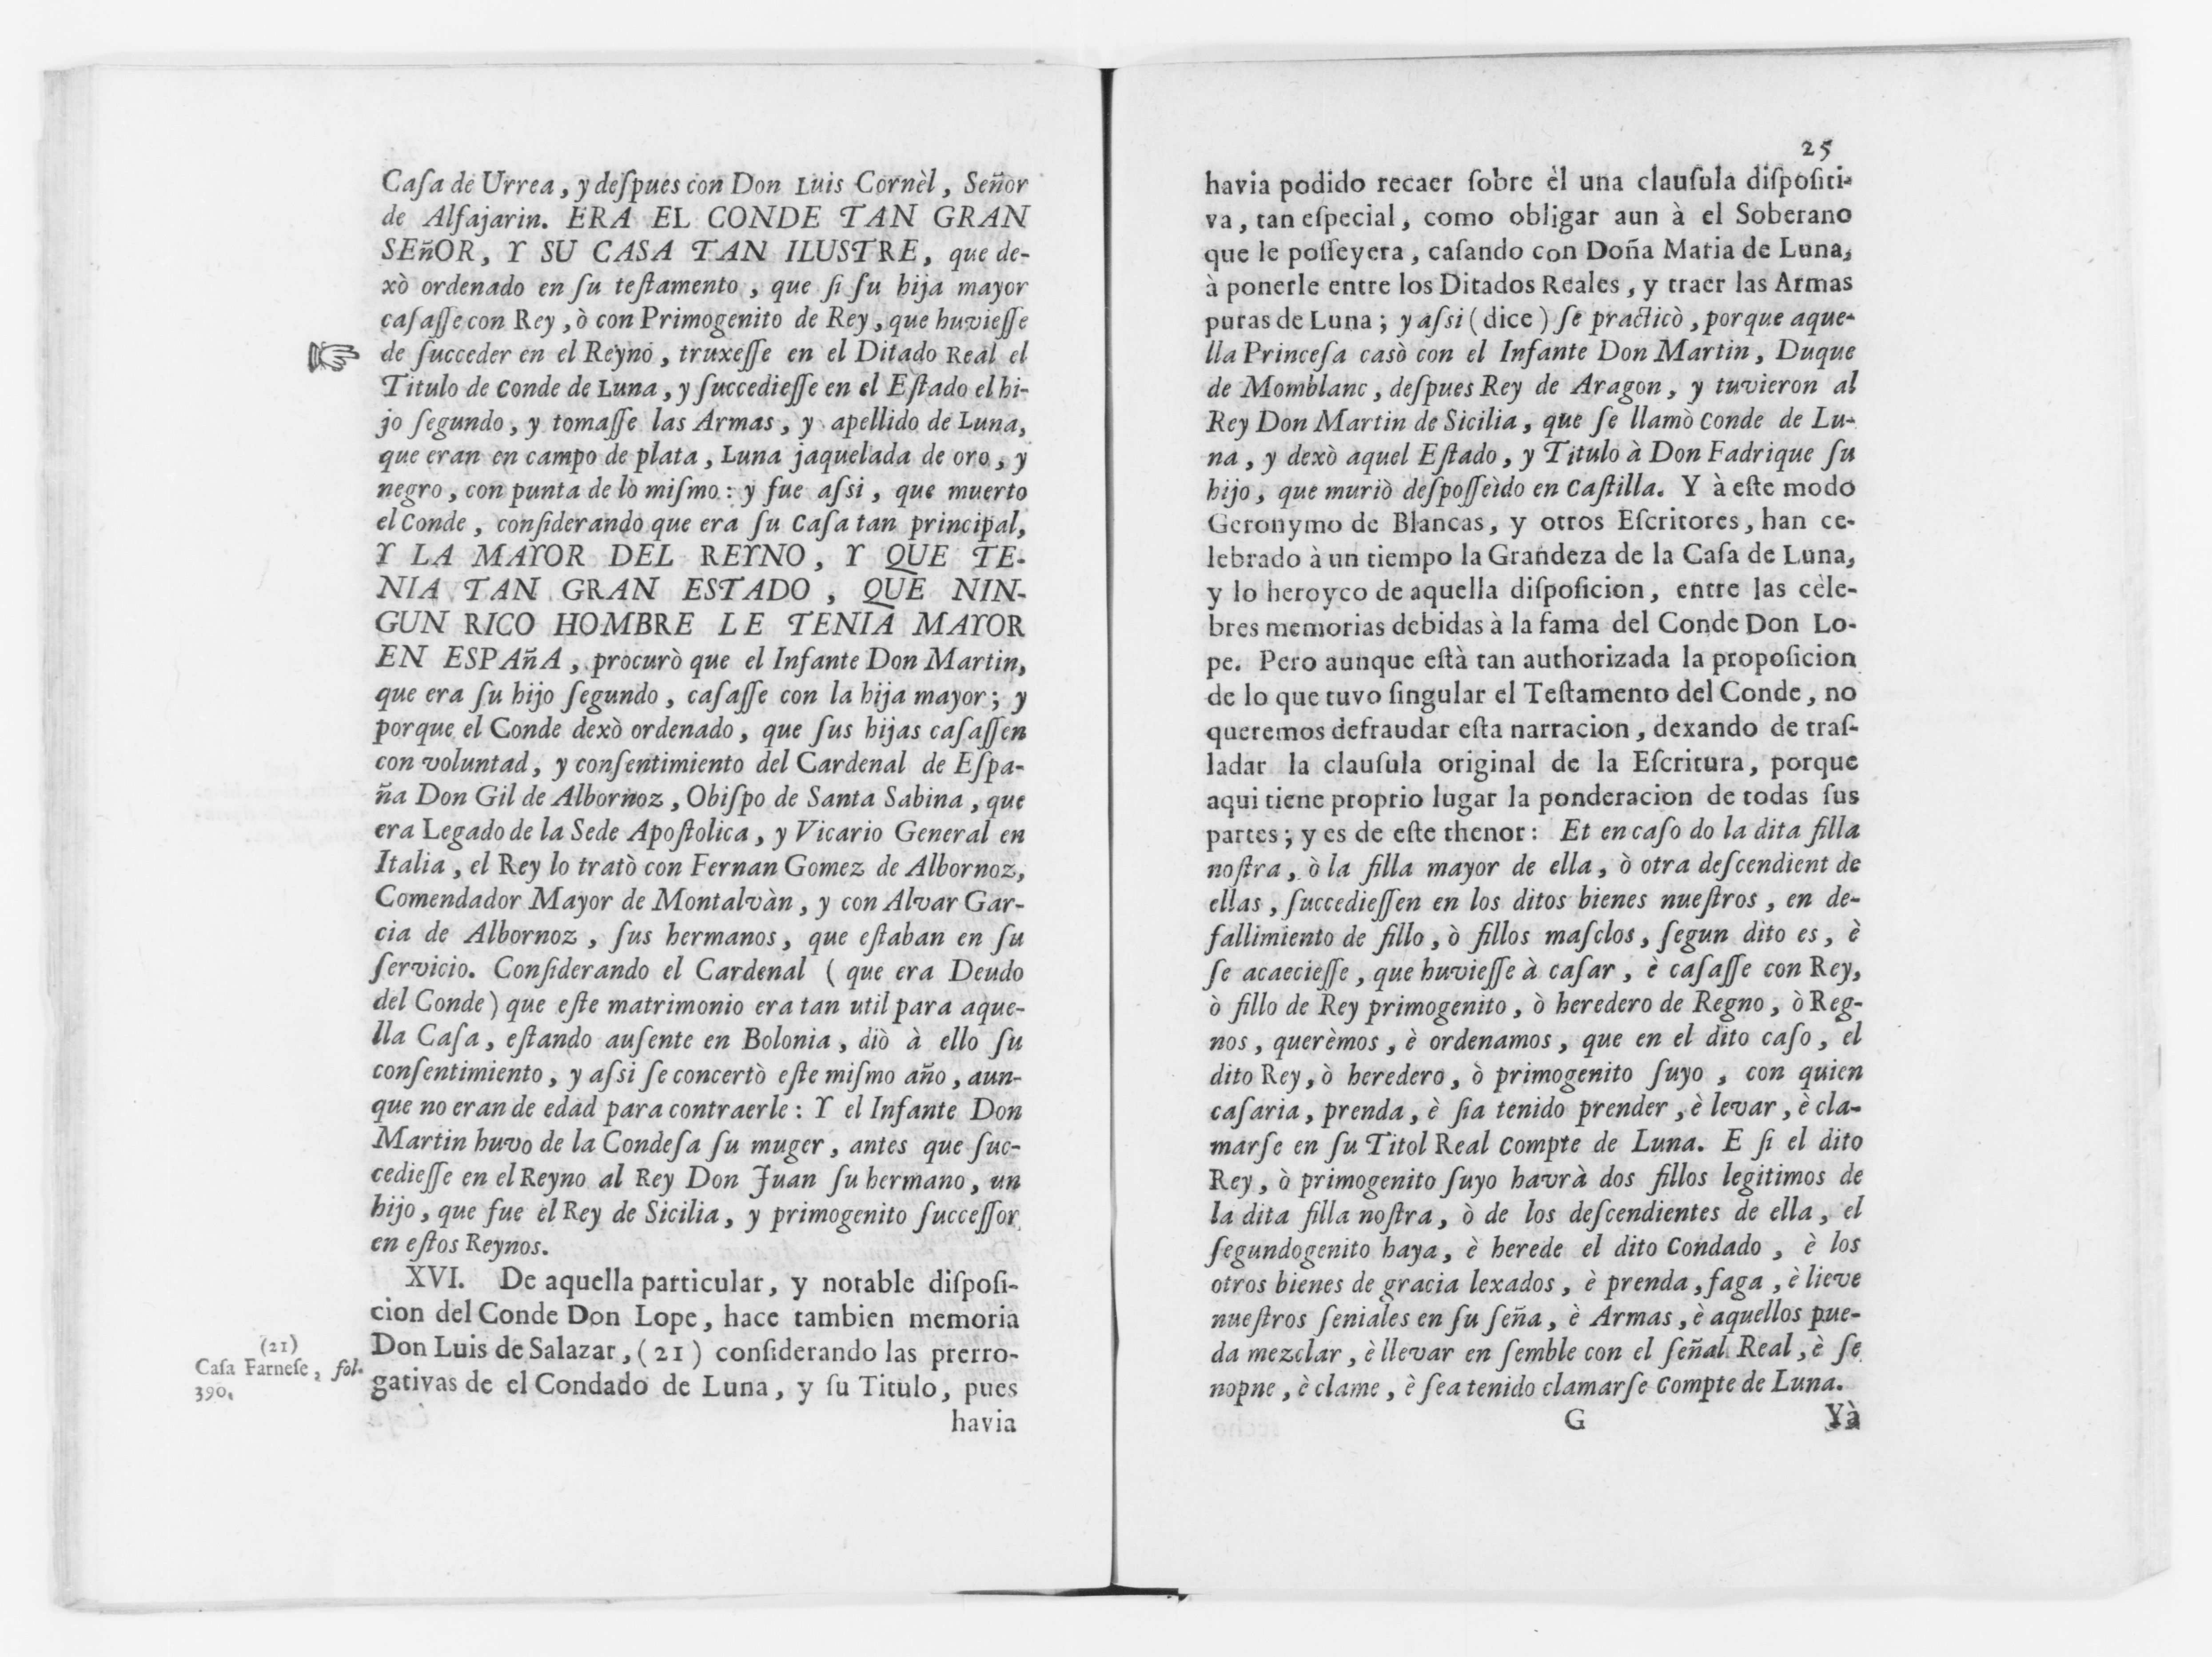 Caſa de Urrea, y deſpues con Don Luis Cornèl, Señor
de Alfajarin. ERA EL CONDE TAN GRAN
SEñOR, Y SU CASA TAN ILUSTRE, que de-
xò ordenado en ſu teſtamento, que ſi ſu hija mayor
caſaſſe con Rey, ò con Primogenito de Rey, que huvieſſe
de ſucceder en el Reyno, truxeſſe en el Ditado Real el
Titulo de Conde de Luna, y ſuccedieſſe en el Eſtado el hi-
jo ſegundo, y tomaſſe las Armas, y apellido de Luna,
que eran en campo de plata, Luna jaquelada de oro, y
negro, con punta de lo miſmo: y fue aſsi, que muerto
el Conde, conſiderando que era ſu Caſa tan principal,
Y LA MAYOR DEL REYNO, Y QUE TE-
NIA TAN GRAN ESTADO, QUE NIN-
GUN RICO HOMBRE LE TENIA MAYOR
EN ESPAñA, procurò que el Infante Don Martin,
que era ſu hijo ſegundo, caſaſſe con la hija mayor; y
porque el Conde dexò ordenado, que ſus hijas caſaſſen
con voluntad, y conſentimiento del Cardenal de Eſpa-
ña Don Gil de Albornoz, Obiſpo de Santa Sabina, que
era Legado de la Sede Apoſtolica, y Vicario General en
Italia, el Rey lo tratò con Fernan Gomez de Albornoz,
Comendador Mayor de Montalvàn, y con Alvar Gar-
cia de Albornoz, ſus hermanos, que eſtaban en ſu
ſervicio. Conſiderando el Cardenal (que era Deudo
del Conde) que eſte matrimonio era tan util para aque-
lla Caſa, eſtando auſente en Bolonia, diò à ello ſu
conſentimiento, y aſsi ſe concertò eſte miſmo año, aun-
que no eran de edad para contraerle: Y el Infante Don
Martin huvo de la Condeſa ſu muger, antes que ſuc-
cedieſſe en el Reyno al Rey Don Juan ſu hermano, un
hijo, que fue el Rey de Sicilia, y primogenito ſucceſſor
en eſtos Reynos.
XVI. De aquella particular, y notable diſpoſi-
cion del Conde Don Lope, hace tambien memoria
Don Luis de Salazar, (21) conſiderando las prerro-
gativas de el Condado de Luna, y ſu Titulo, pues
havia
(21)
Caſa Farneſe, fol.
390.
25
havia podido recaer ſobre èl una clauſula diſpoſiti-
va, tan eſpecial, como obligar aun à el Soberano
que le poſſeyera, caſando con Doña Maria de Luna,
à ponerle entre los Ditados Reales, y traer las Armas
puras de Luna; y aſsi (dice) ſe practicò, porque aque-
lla Princeſa casò con el Infante Don Martin, Duque
de Momblanc, deſpues Rey de Aragon, y tuvieron al
Rey Don Martin de Sicilia, que ſe llamò Conde de Lu-
na, y dexò aquel Eſtado, y Titulo à Don Fadrique ſu
hijo, que muriò deſpoſſeìdo en Caſtilla. Y à eſte modo
Geronymo de Blancas, y otros Eſcritores, han ce-
lebrado à un tiempo la Grandeza de la Caſa de Luna,
y lo heroyco de aquella diſpoſicion, entre las cèle-
bres memorias debidas à la fama del Conde Don Lo-
pe. Pero aunque eſtà tan authorizada la propoſicion
de lo que tuvo ſingular el Teſtamento del Conde, no
queremos defraudar eſta narracion, dexando de traſ-
ladar la clauſula original de la Eſcritura, porque
aqui tiene proprio lugar la ponderacion de todas ſus
partes; y es de eſte thenor: Et en caſo do la dita filla
noſtra, ò la filla mayor de ella, ò otra deſcendient de
ellas, ſuccedieſſen en los ditos bienes nueſtros, en de-
fallimiento de fillo, ò fillos maſclos, ſegun dito es, è
ſe acaecieſſe, que huvieſſe à caſar, è caſaſſe con Rey,
ò fillo de Rey primogenito, ò heredero de Regno, ò Reg-
nos, querèmos, è ordenamos, que en el dito caſo, el
dito Rey, ò heredero, ò primogenito ſuyo, con quien
caſaria, prenda, è ſia tenido prender, è levar, è cla-
marſe en ſu Titol Real Compte de Luna. E ſi el dito
Rey, ò primogenito ſuyo havrà dos fillos legitimos de
la dita filla noſtra, ò de los deſcendientes de ella, el
ſegundogenito haya, è herede el dito Condado, è los
otros bienes de gracia lexados, è prenda, faga, è lieve
nueſtros ſeniales en ſu ſeña, è Armas, è aquellos pue-
da mezclar, è llevar en ſemble con el ſeñal Real, è ſe
nopne, è clame, è ſea tenido clamarſe Compte de Luna.
G Yà